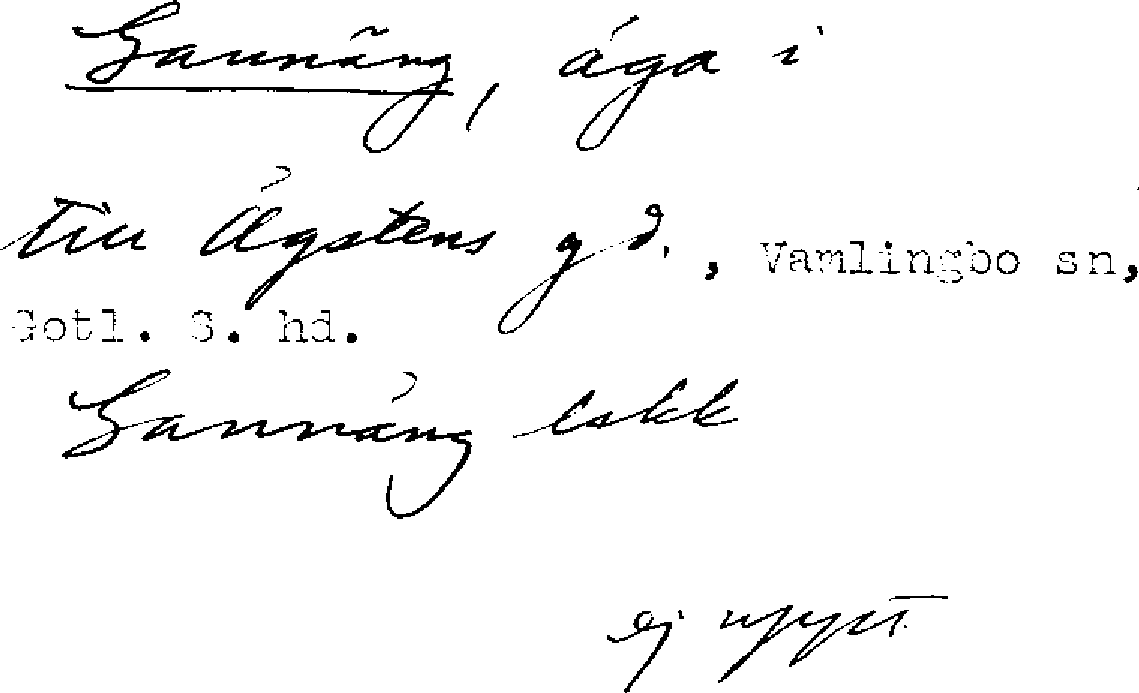 Sannäng, äga i
till Ägstens gd., Vamlingbo sn,
Gotl. S. hd.
Sannäng lskk
ej uppt